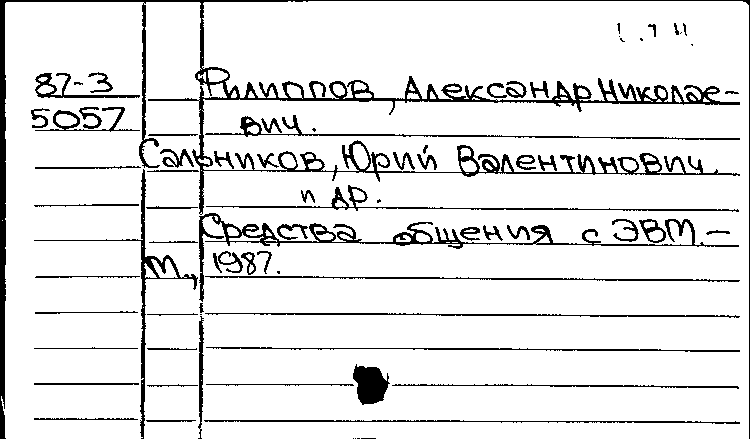 87-3 Филиппов, Александр Николае-
5057 вич.
Сальников, Юрий Валентинович
и др.
Средства общения с ЭВМ.-
М., 1987.